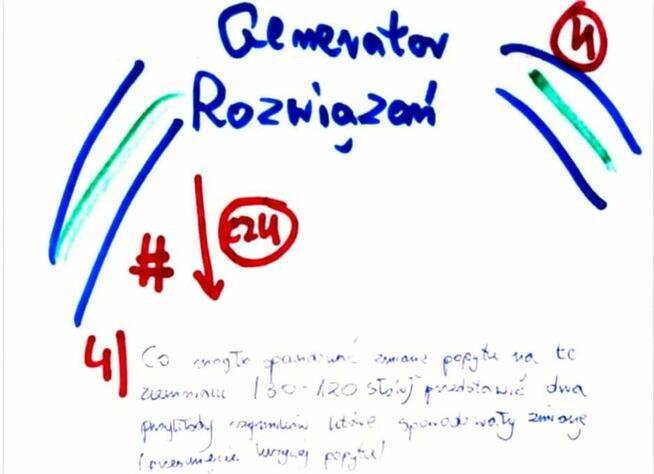 Generator
4
Rozwiązań
#
4) Co mogło spowodować zmianę popytu na te
ziemniaki (80-120 słów) przedstawić dwa
przykłady czynników które spowodowały zmianę
(przesunięcie krzywej popytu)